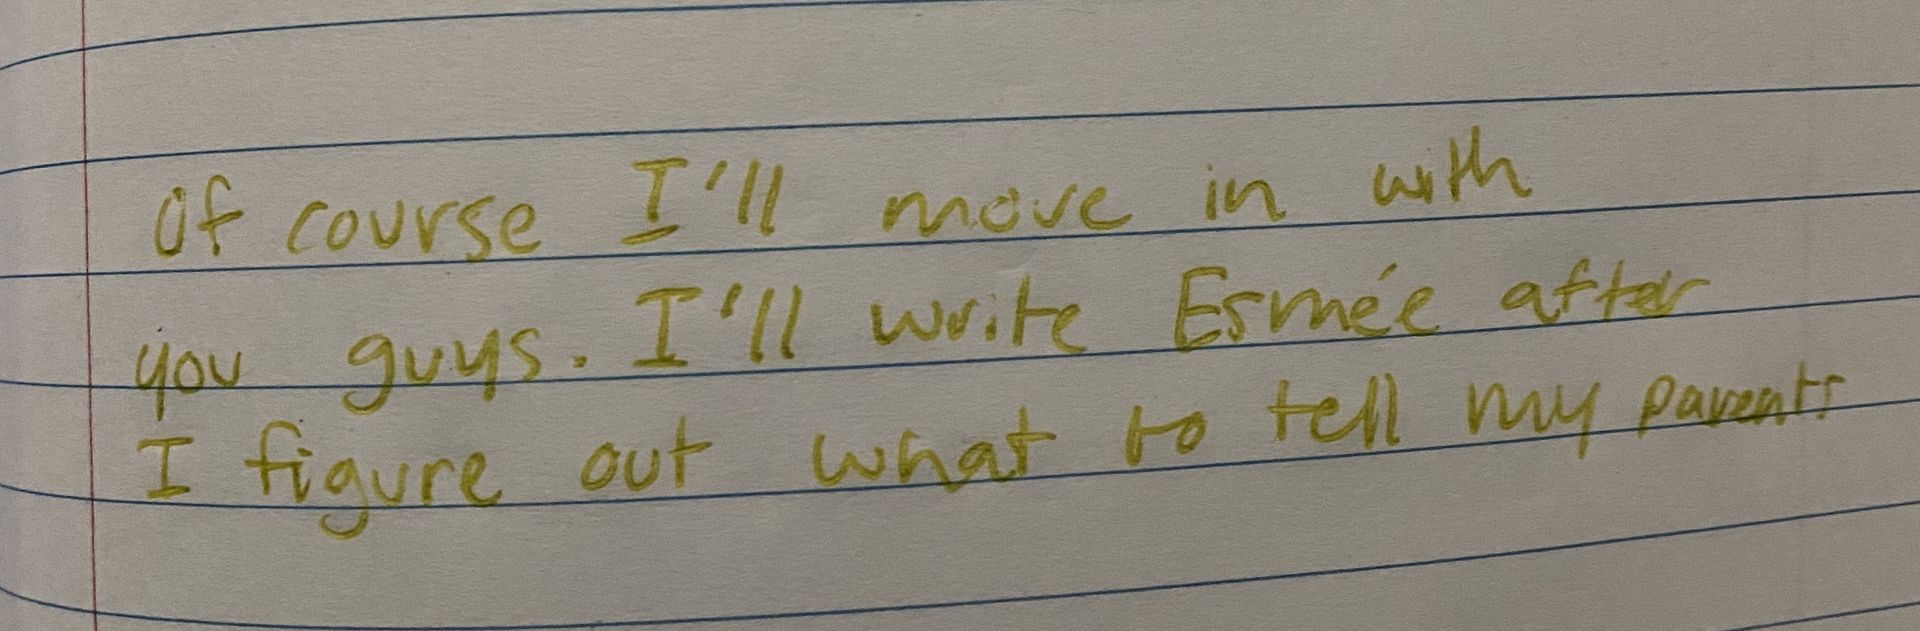 Of course I'll move in with
you guys. I'll write Esmée after
I figure out what to tell my parents